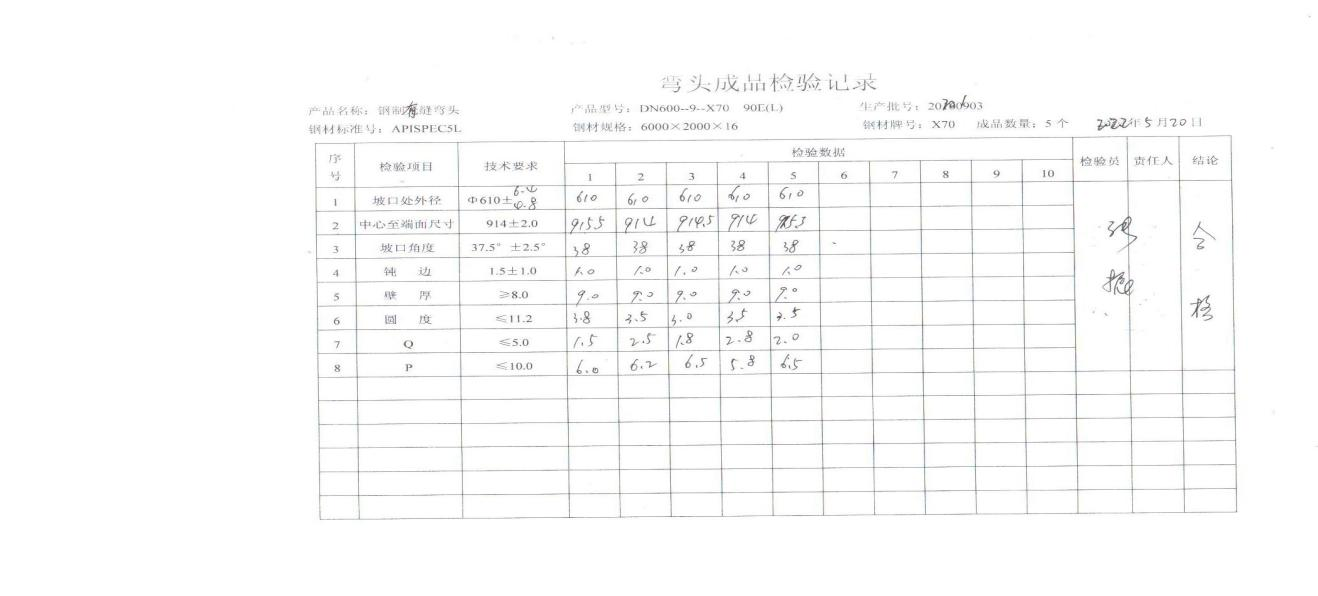 弯头成品检验记录
产品名称：钢制有缝弯头 产品型号：DN600--9--X70 90E(L) 生产批号：
钢材标准号：APISPEC5L 钢材规格：6000×2000×16 钢材牌号：X70 成品数量：5 个 2022年5月20日
序号 检验项目 技术要求 检验数据 检验员 责任人 结论
1 2 3 4 5 6 7 8 9 10
1 坡口处外径 Φ610± 610 610 610 610 610
2 中心至端面尺寸 914±2.0 915.5 914 914.5 914
3 坡口角度 37.5°±2.5° 38 38 38 38 38
4 钝 边 1.5±1.0 1.0 1.0 1.0 1.0 1.0
5 壁 厚 ≥8.0 9.0 9.0 9.0 9.0 9.0
6 圆 度 ≤11.2 3.8 3.5 3.0 3.5 3.5
7 Q ≤5.0 1.5 2.5 1.8 2.8 2.0
8 P ≤10.0 6.0 6.2 6.5 5.8 6.5
合格